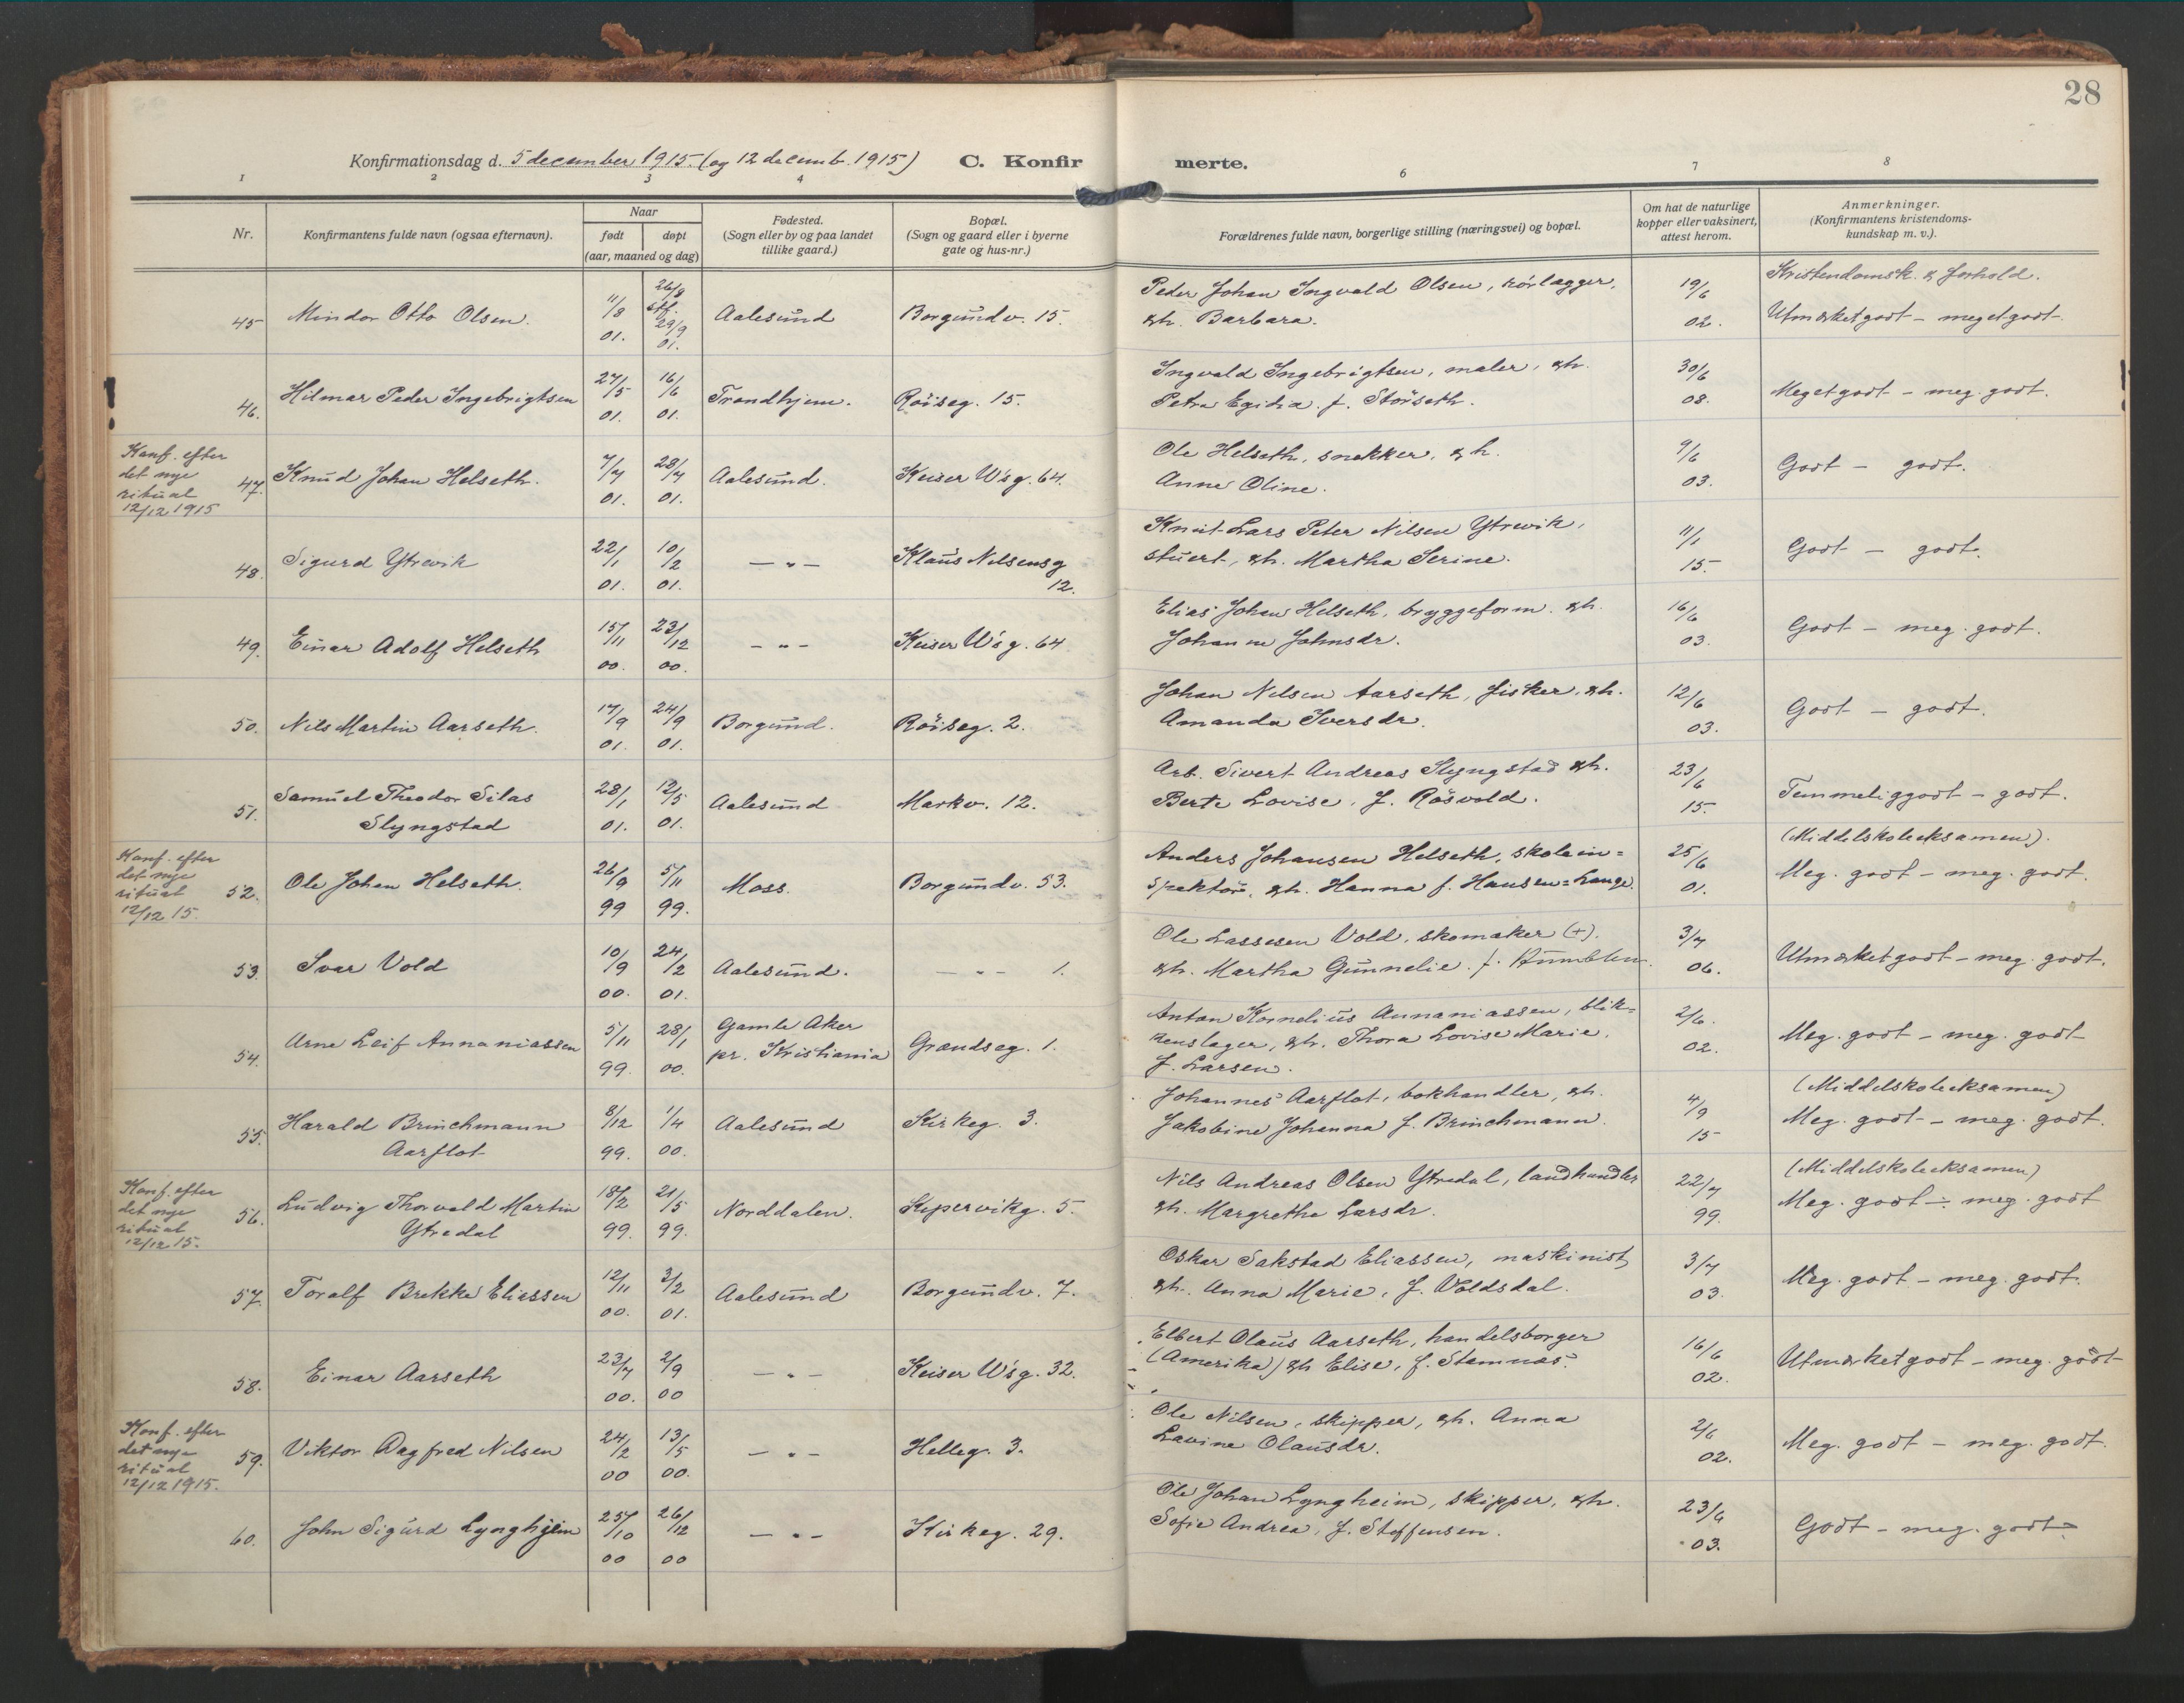 28
Konfirmationsdag d. 5 december 1915. (og 12 decemb. 1915) C. Konfirmerte.
1 2 3 4 6 7 8
Nr.
Konfirmantens fulde navn (ogsaa efternavn).
Naar
født døpt
(aar, maaned og dag)
Fødested.
(Sogn eller by og paa landet
tillike gaard.)
Bopæl.
(Sogn og gaard eller i byerne
gate og hus-nr.)
Forældrenes fulde navn, borgerlige stilling (næringsvei) og bopæl.
Om hat de naturlige
kopper eller vaksinert,
attest herom.
Anmerkninger.
(Konfirmantens kristendoms-
kundskap m. v.).
Kristendomsk. & forhold.
45 Mindor Otto Olsen. 11/8 01. 26/8 stf. 29/9 01. Aalesund Borgundv. 15.
Peder Johan Ingvald Olsen, rörlægger,
& h. Barbara.
19/6 02. Utmerket godt - meget godt.
46. Hilmar Peder Ingebrigtsen 27/5 01. 16/6 01. Trondhjem. Röiseg. 15.
Ingvald Ingebrigtsen, maler, & h.
Petra Egidia f. Störseth.
30/6 08. Meget godt - meg. godt.
Konf. efter
det nye
ritual
12/12 1915
47. Knud Johan Helseth. 7/7 01. 28/7 01. Aalesund. Keiser W's g. 64.
Ole Helseth, snekker, & h.
Anne Oline.
9/6 03. Godt - godt.
48. Sigurd Ytrevik 22/1 01. 10/2 01. — " — Klaus Nilsensg
12.
Knut Lars Peter Nilsen Ytrevik,
stuert, & h. Martha Serine.
11/1 15. Godt - godt.
49. Einar Adolf Helseth 15/11 00. 23/12 00. — " — Keiser W's g. 64
Elias Johan Helseth, bryggeform. & h.
Johanne Johnsdr.
16/6 03. Godt - meg. godt.
50. Nils Martin Aarseth. 17/9 01. 24/9 01. Borgund. Röiseg. 2.
Johan Nilsen Aarseth, fisker, & h.
Amanda Iversdr.
12/6 03. Godt - godt.
51. Samuel Theodor Silas
Slyngstad 28/1 01. 12/5 01. Aalesund Markv. 12.
Arb. Sivert Andreas Slyngstad & h.
Berte Lovise, f. Rösvold.
23/6 15. Temmelig godt - godt.
Konf. efter
det nye
ritual
12/12 15.
52. Ole Johan Helseth. 26/9 99 5/11 99. Moss. Borgundv. 53.
Anders Johansen Helseth, skolein=
spektör, & h. Hanna f. Hansen=Lange.
25/6 01. (Middelskoleeksamen).
Meg. godt - meg. godt.
53. Ivar Vold 10/9 00. 24/2 01. Aalesund. — " — 1.
Ole Lassesen Vold, skomaker (+).
& h. Martha Gunnelie f. Humblen.
3/7 06. Utmerket godt - meg. godt.
54. Arne Leif Annaniassen 5/11 99. 28/1 00. Gamle Aker
pr. Kristiania Grandseg. 1.
Anton Kornelius Annaniassen, blik=
kenslager, & h. Thora Lovise Marie,
f. Larsen.
2/6. 02. Meg. godt - meg. godt
55. Harald Brinchmann
Aarflot 8/12 99. 1/4 00. Aalesund Kirkeg. 3.
Johannes Aarflot, bokhandler, & h.
Jakobine Johanna f. Brinchmann.
4/9 15 (Middelskoleeksamen)
Meg. godt - meg. godt.
Konf. efter
det nye
ritual
12/12 15.
56. Ludvig Thorvald Martin
Ytredal 18/2 99. 21/5 99. Norddalen. Kipervikg. 5.
Nils Andreas Olsen Ytredal, landhandler
& h. Margrethe Larsdr.
22/7 99. (Middelskoleeksamen)
Meg. godt - meg. godt
57. Toralf Brekke Eliassen 12/11 00. 3/2 01. Aalesund Borgundv. 7.
Oskar Sakstad Eliassen, maskinist,
& h. Anna Marie, f. Voldsdal.
3/7 03. Meg. godt - meg. godt.
58. Einar Aarseth 23/7 00. 2/9 00 — " — Keiser W's g. 32.
Elbert Olaus Aarseth, handelsborger
(Amerika) & h Elise, f. Stemnæs.
16/6 02. Utmerket godt - meg. godt
Konf. efter
det nye
ritual
12/12 1915.
59. Viktor Dagfred Nilsen 24/2 00 13/5 00. — " — Helleg. 3.
Ole Nilsen, skipper, & h. Anna
Lavine Olausdr.
2/6 02. Meg. godt - meg. godt.
60. John Sigurd Lyngheim 25/10 00 26/12 00 — " — Kirkeg. 29.
Ole Johan Lyngheim, skipper, & h.
Sofie Andrea, f. Steffensen.
23/6 03. Godt - meg. godt.